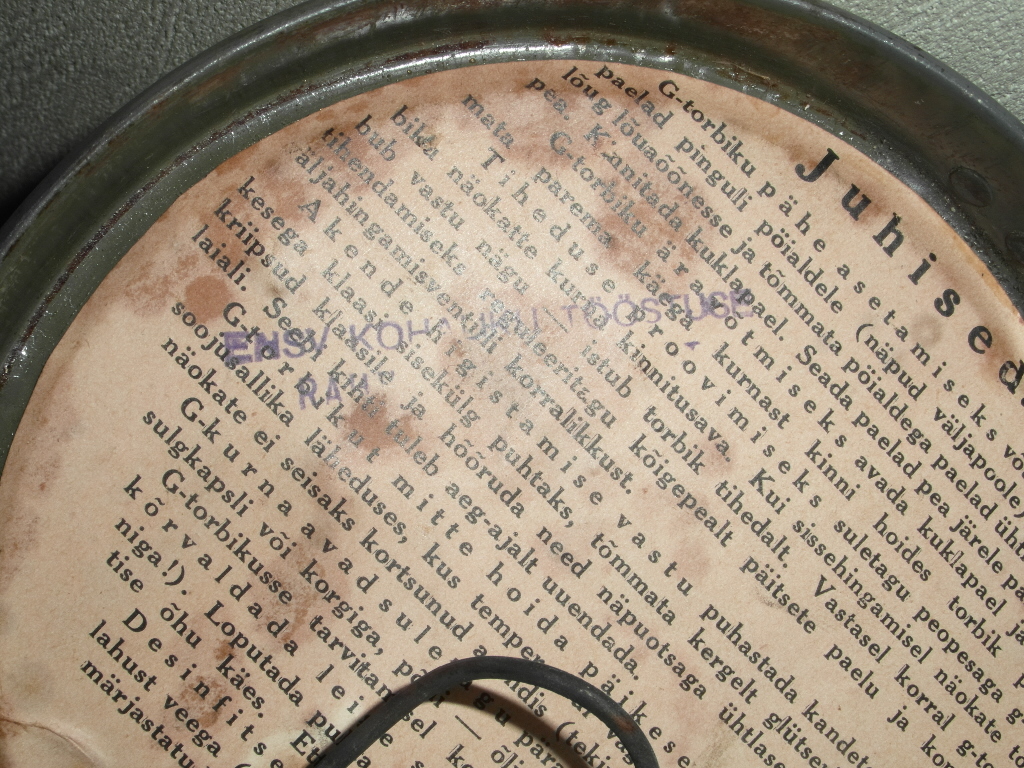 Juhised
G-torbiku päheasetamiseks võ
paelad pinguli pöialdele (näpud väljapoole)
lõug lõuaõõnesse ja tõmmata pöialdega paelad üht
pea. Kinnitada kuklapael. Seada paelad pea järele pa
G-torbiku äravõtmiseks avada kuklapael ja
mata parema käega kurnast kinni hoides
Tiheduse proovimiseks suletagu peopesaga g
biku näokatte kurn kinnitusava. Kui sissehingamisel näokate to
bub vastu nägu, istub torbik tihedalt. Vastasel korral g-to
tihendamiseks reguleeritagu kõigepealt päitsete paelu ja
väljahingamisventiili korralikkust.
Akende higistamise vastu puhastada
kesega klaaside sisekülg puhtaks, tõmmata kergelt glütse
kriipsud klaasile ja hõõruda need näpuotsaga ühtlase
laiali. Seda kihti tuleb aeg-ajalt uuendada.
G-torbikut mitte hoida päikese
soojusallika läheduses, kus tempe
näokate ei seisaks kortsunud
G-kurna avad sule
sulgkapsli või korgiga,
G-torbikusse tarvita
kõrvaldada
niga!). Loputada pu
tise õhu käes.
Desinfitse
lahust veega
märjastatu
ENSV KOH TÖÖSTUSE